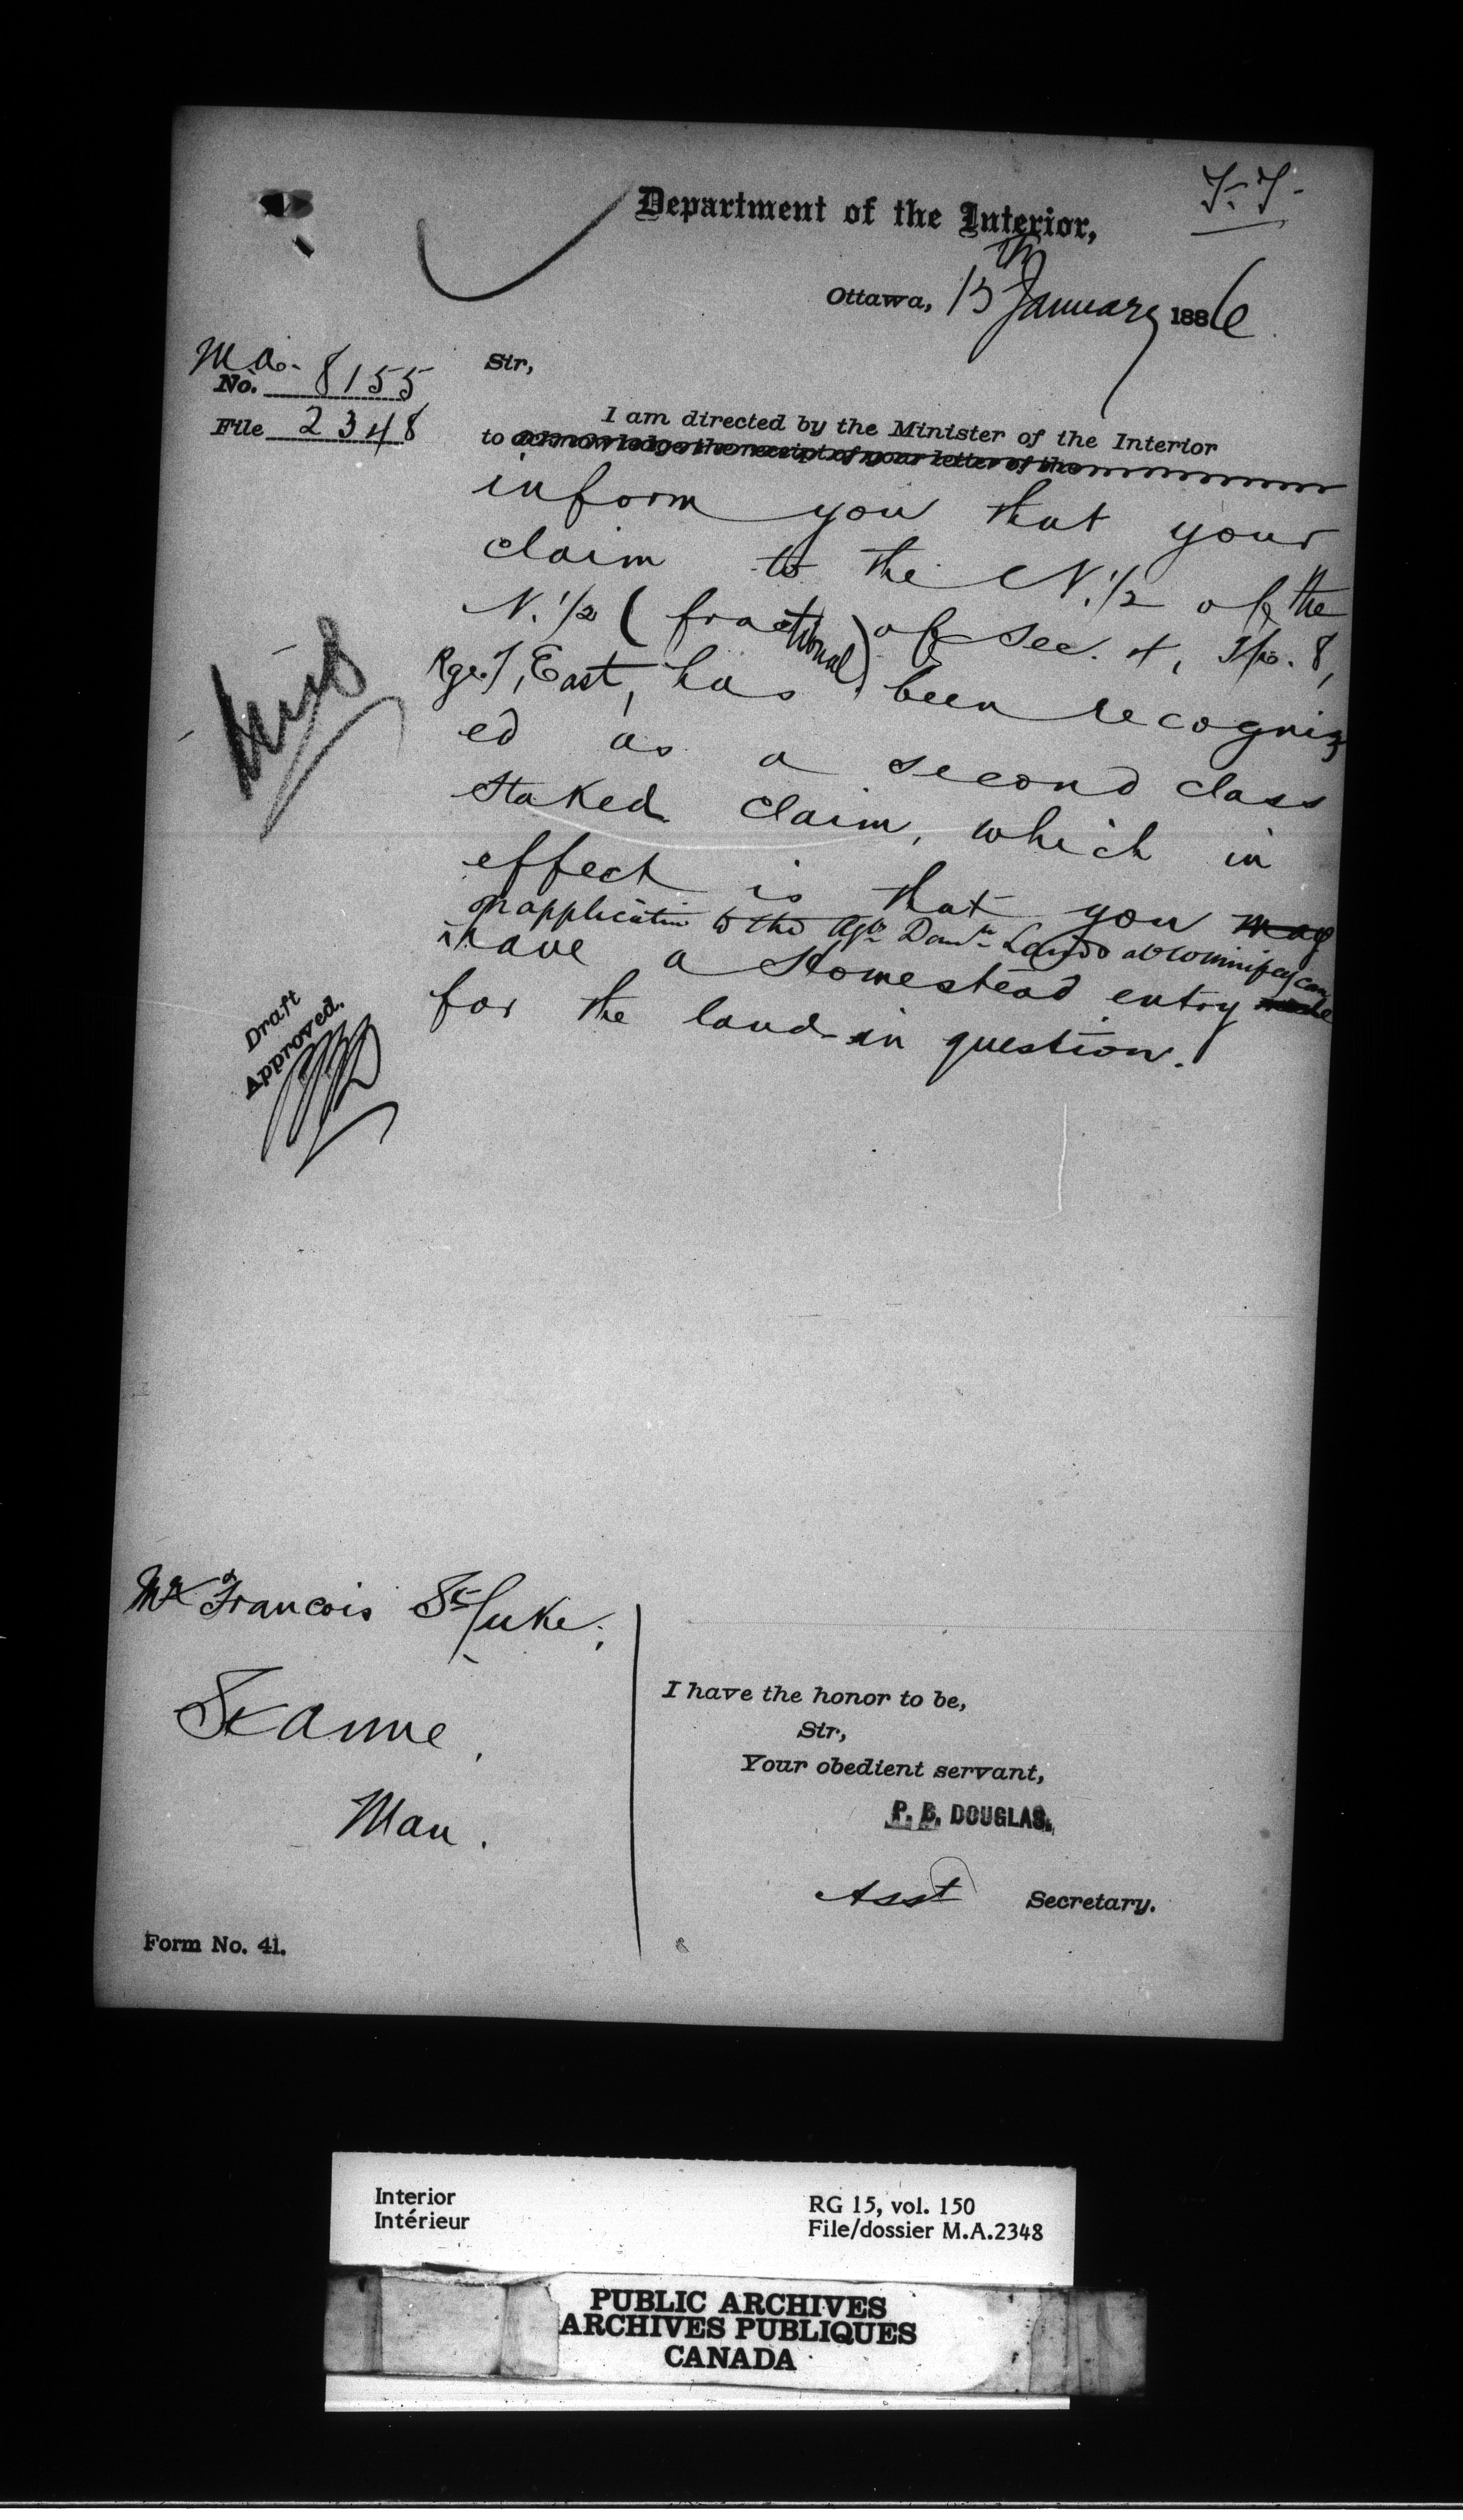 Department of the Interior,
Ottawa, 15th January 1886.
M.A.
No. 8155
File 2348
Sir,
I am directed by the Minister of the Interior
to acknowledge the receipt of your letter of the
inform you that your
claim to the N. 1/2 of the
N. 1/2 (fractional) of Sec. 4, Tp. 8,
Rge. 7, East, has been recogniz
ed as a second class
staked claim, which in
effect is that you may
on application to the Agt Domn Lands at Winnipeg can
have a Homestead entry made
for the land in question.
Draft
Approved.
Mr Francois St Luke,
St Anne,
Man.
I have the honor to be,
Sir,
Your obedient servant,
P. B. DOUGLAS.
Asst Secretary.
Form No. 41.
Interior
Intérieur
RG 15, vol. 150
File/dossier M.A.2348
PUBLIC ARCHIVES
ARCHIVES PUBLIQUES
CANADA